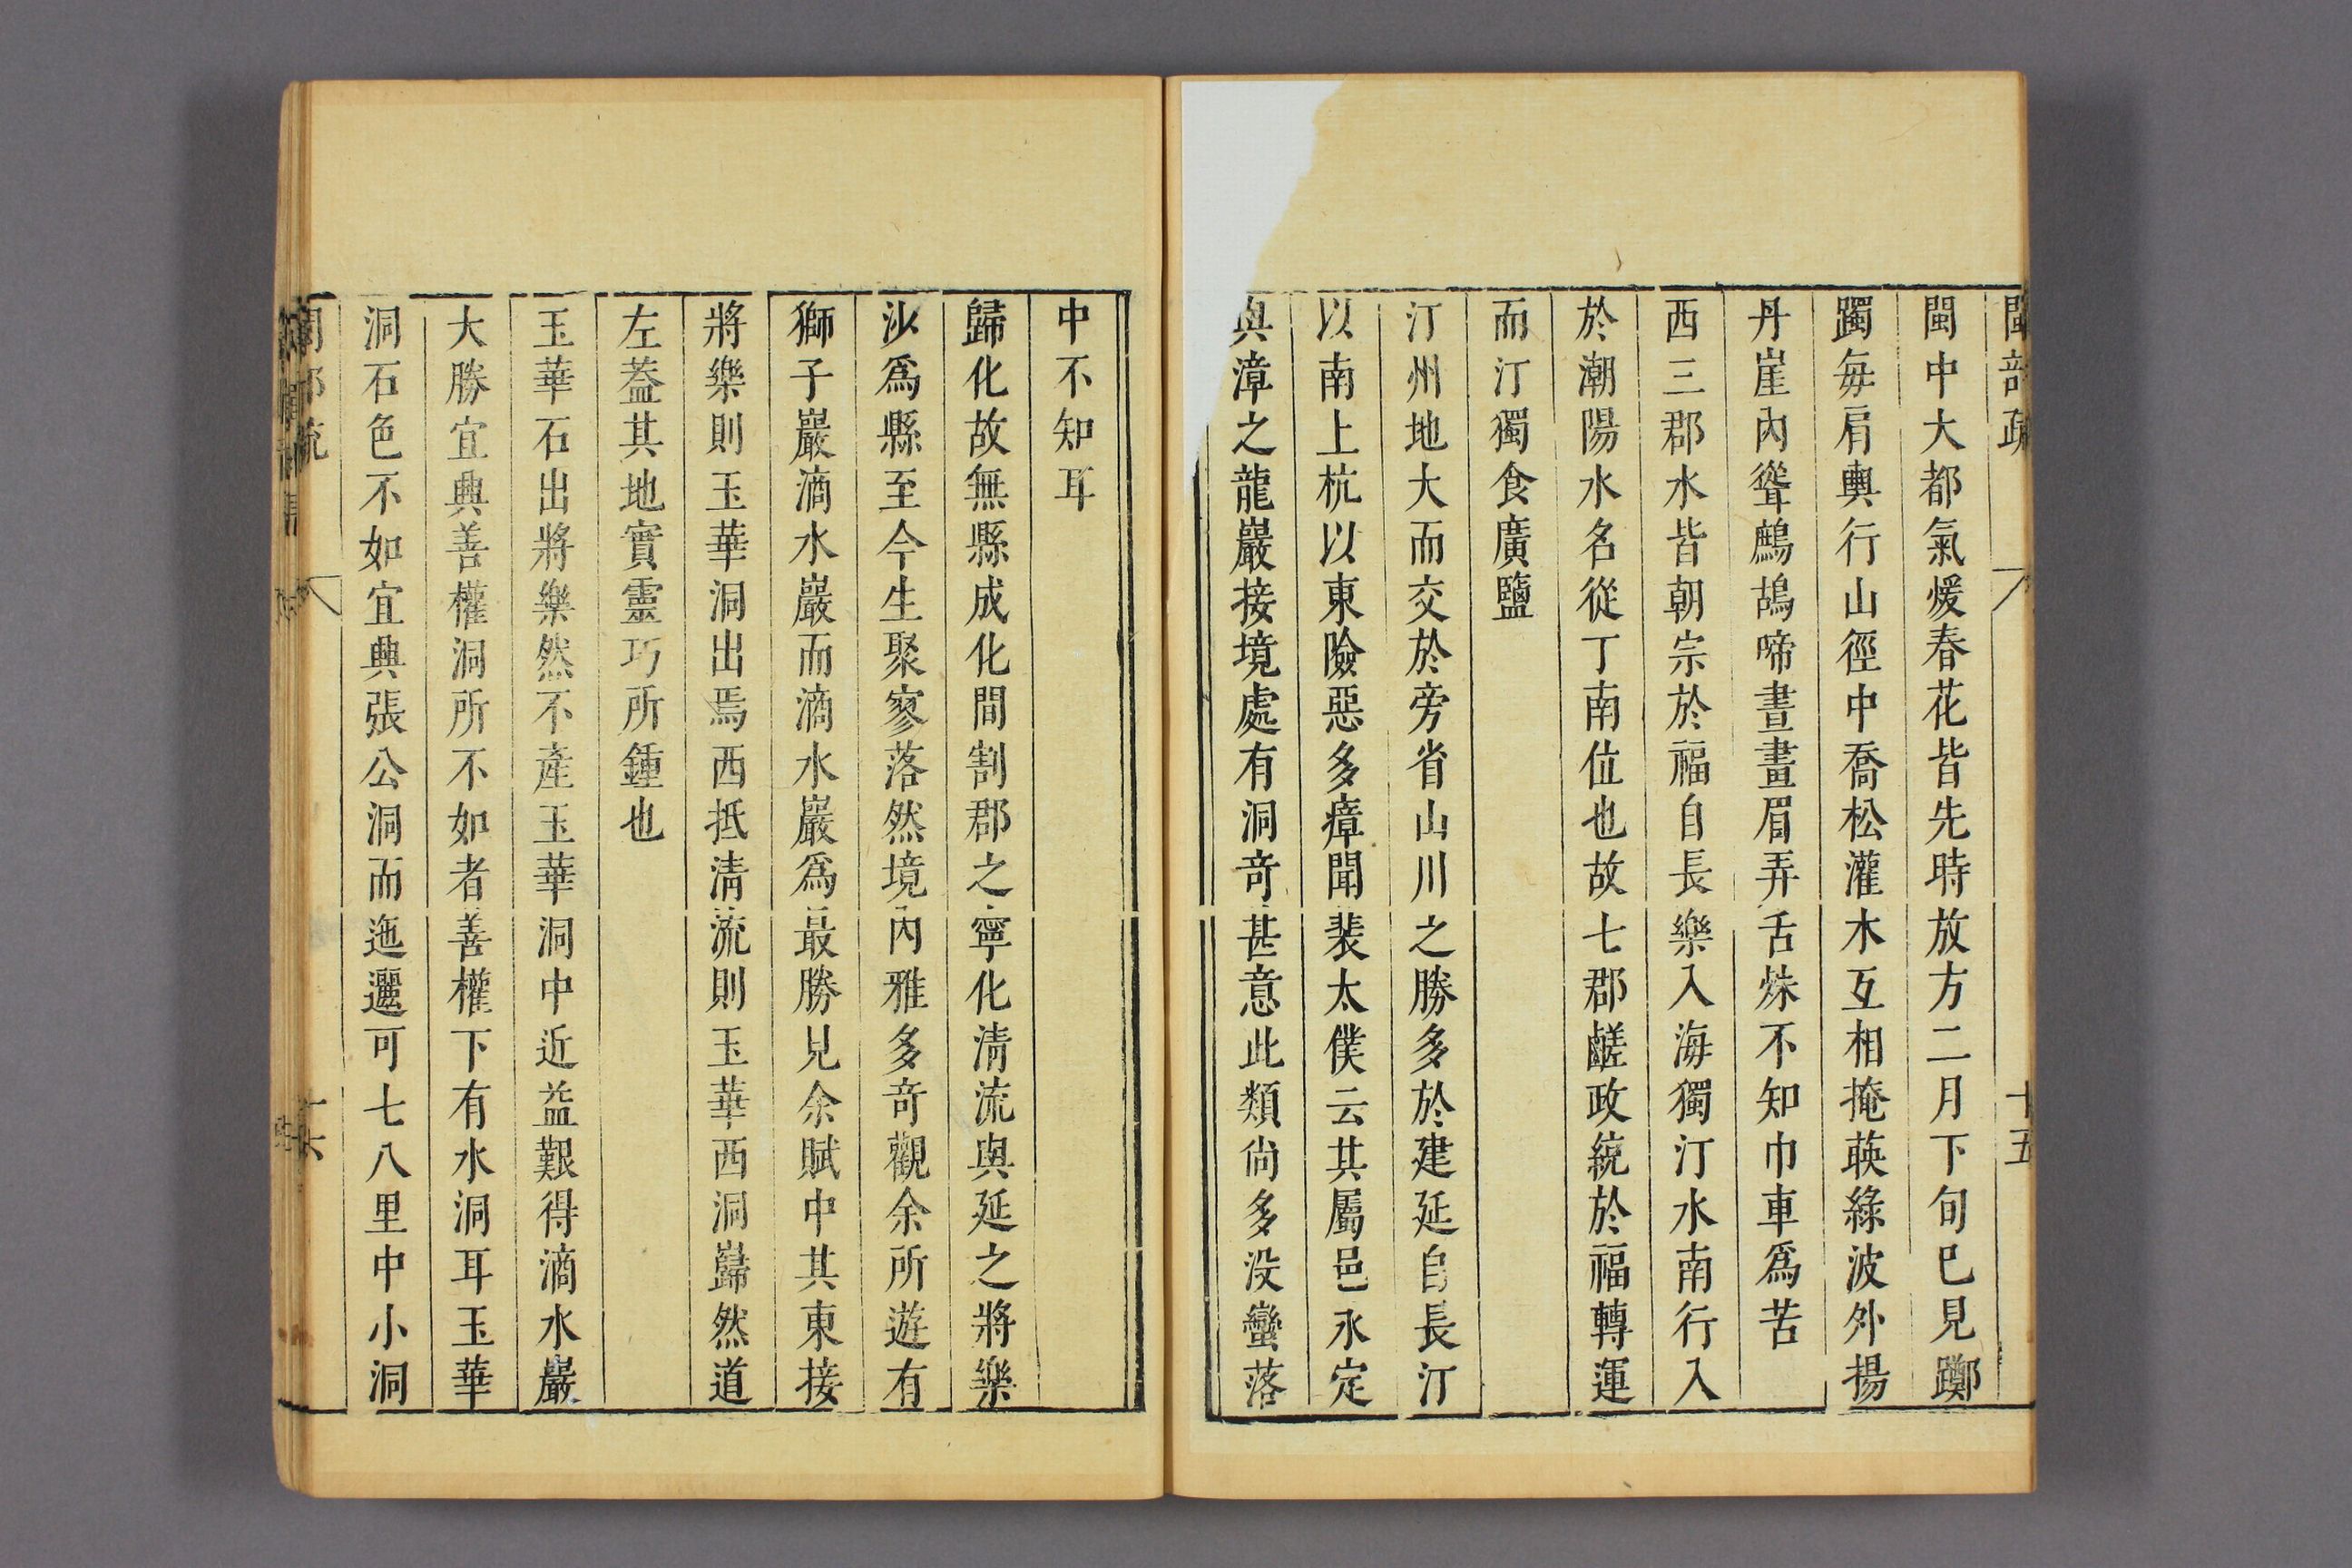 閩部疏
十五
閩中大都氣煖春花皆先時放方二月下旬巳見躑
躅每肩輿行山徑中喬松灌木互相掩暎綠波外揚
丹崖內聳鷓鴣啼晝畫眉弄舌殊不知巾車爲苦
西三郡水皆朝宗於福自長樂入海獨汀水南行入
於潮陽水名從丁南位也故七郡鹺政統於福轉運
而汀獨食廣鹽
汀州地大而交於旁省山川之勝多於建延自長汀
以南上杭以東險惡多瘴聞裴太僕云其屬邑永定
與漳之龍巖接境處有洞奇甚意此類尙多没蠻落
中不知耳
歸化故無縣成化間割郡之寧化清流與延之將樂
沙爲縣至今生聚寥落然境內雅多奇觀余所遊有
獅子巖滴水巖而滴水巖爲最勝見余賦中其東接
將樂則玉華洞出焉西抵清流則玉華西洞巋然道
左葢其地實靈巧所鍾也
玉華石出將樂然不產玉華洞中近益艱得滴水巖
大勝宜興善權洞所不如者善權下有水洞耳玉華
洞石色不如宜興張公洞而迤邐可七八里中小洞
閩部疏
十六